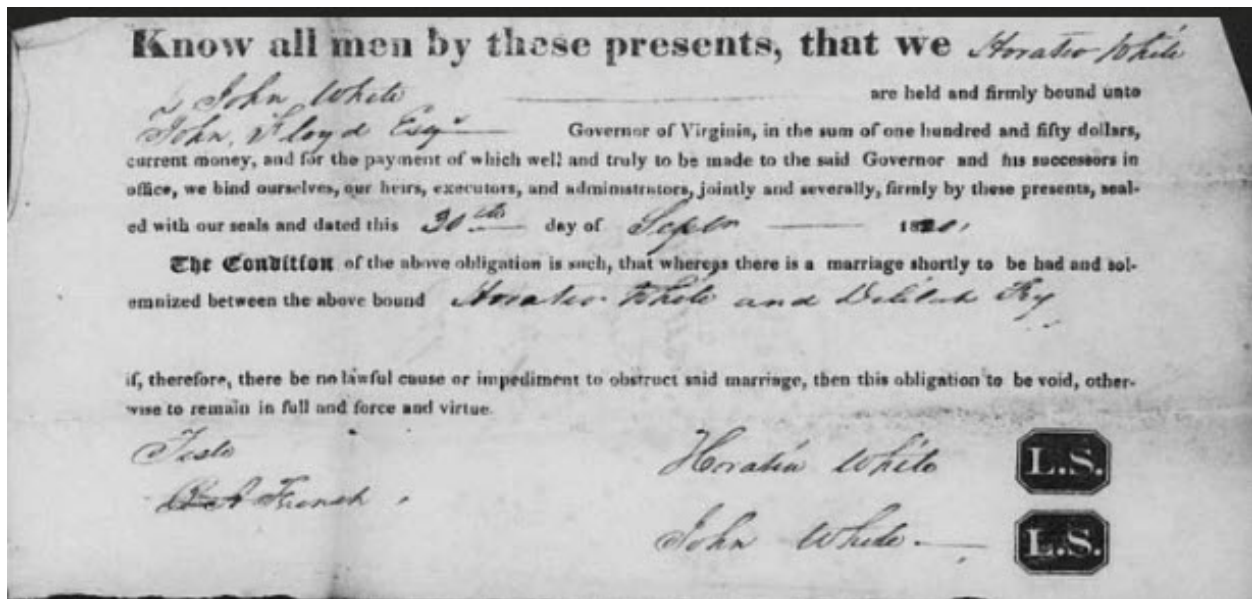 Know all men by these presents, that we Horatio White
& John White are held and firmly bound unto
John Floyd Esqr Governor of Virginia, in the sum of one hundred and fifty dollars,
current money, and for the payment of which well and truly to be made to the said Governor and his successors in
office, we bind ourselves, our heirs, executors, and administrators, jointly and severally, firmly by these presents, seal-
ed with our seals and dated this 30th day of Septr
The Condition of the above obligation is such, that whereas there is a marriage shortly to be had and sol-
emnized between the above bound Horatio White and Delilah
if, therefore, there be no lawful cause or impediment to obstruct said marriage, then this obligation to be void, other-
wise to remain in full and force and virtue.
Teste
French
Horatio White L.S.
John White L.S.